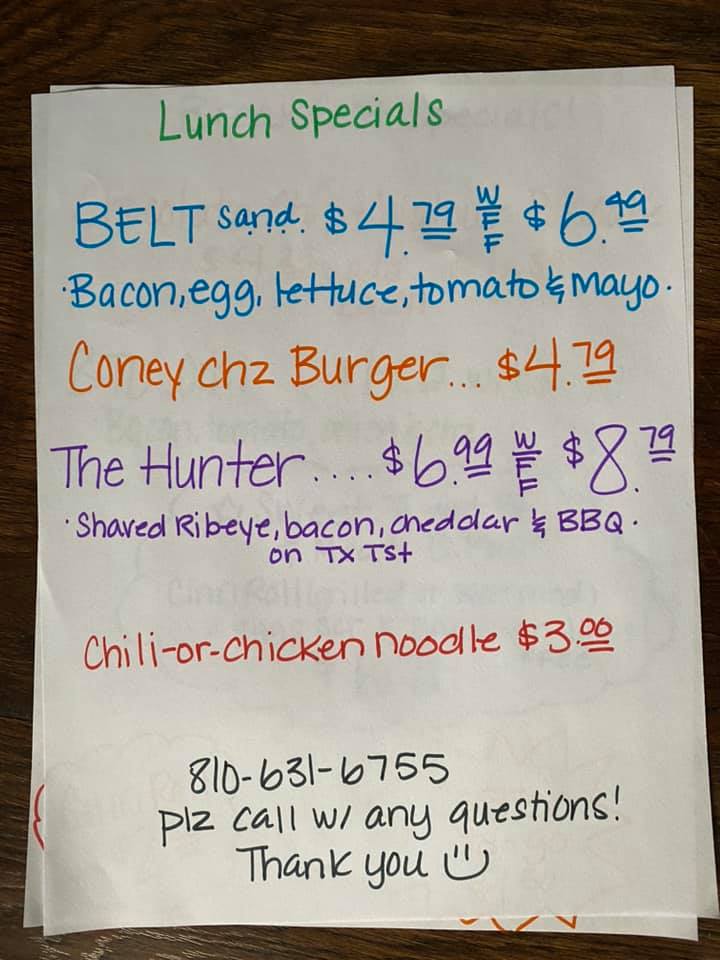 Lunch Specials
BELT sand. $4.79 WFF $6.49
·Bacon, egg, lettuce, tomato & Mayo·
Coney chz Burger... $4.79
The Hunter.... $6.99 WFF $8.79
·Shaved Ribeye, bacon, cheddar & BBQ·
on TX Tst
Chili-or-chicken noodle $3.00
810-631-6755
plz call w/ any questions!
Thank you